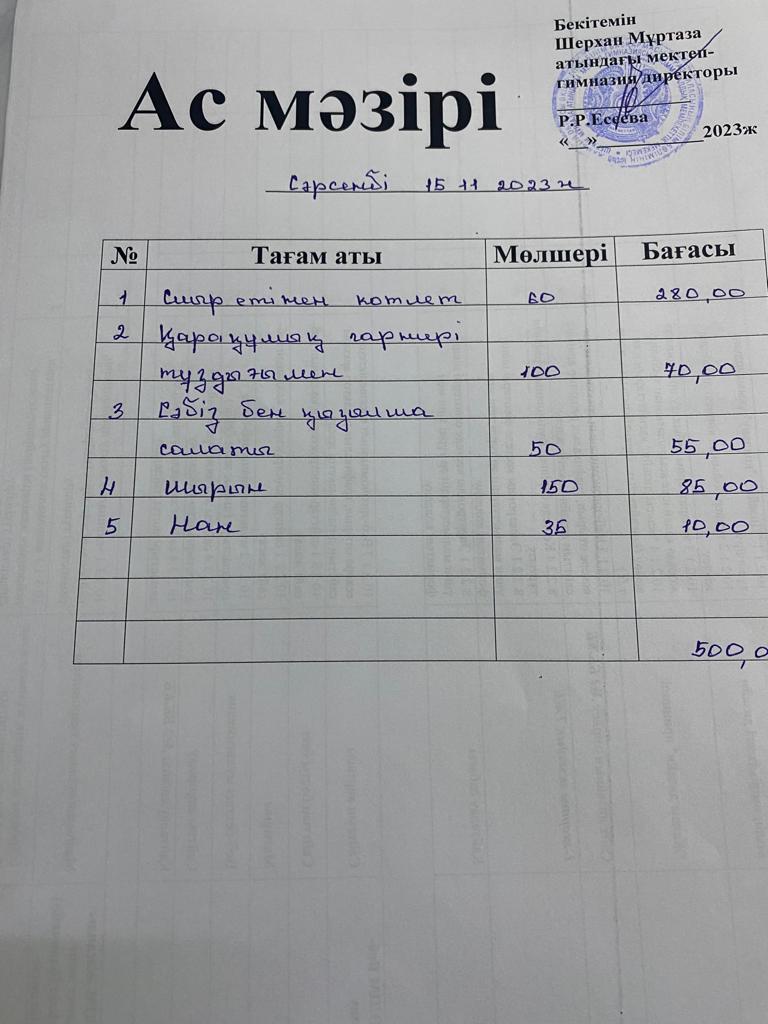 Бекітемін
Шерхан Мұртаза
атындағы мектеп-
гимназия директоры
Р.Р.Есеева
«__»____________2023ж
Ас мәзірі
Сәрсенбі 15 11 2023 ж
№ Тағам аты Мөлшері Бағасы
1 Сиыр етінен котлет 60 280,00
2 Қарақұмық гарнері
тұздығымен 100 70,00
3 Сәбіз бен қызылша
салаты 50 55,00
4 шырын 150 85,00
5 Нан 35 10,00
500,0